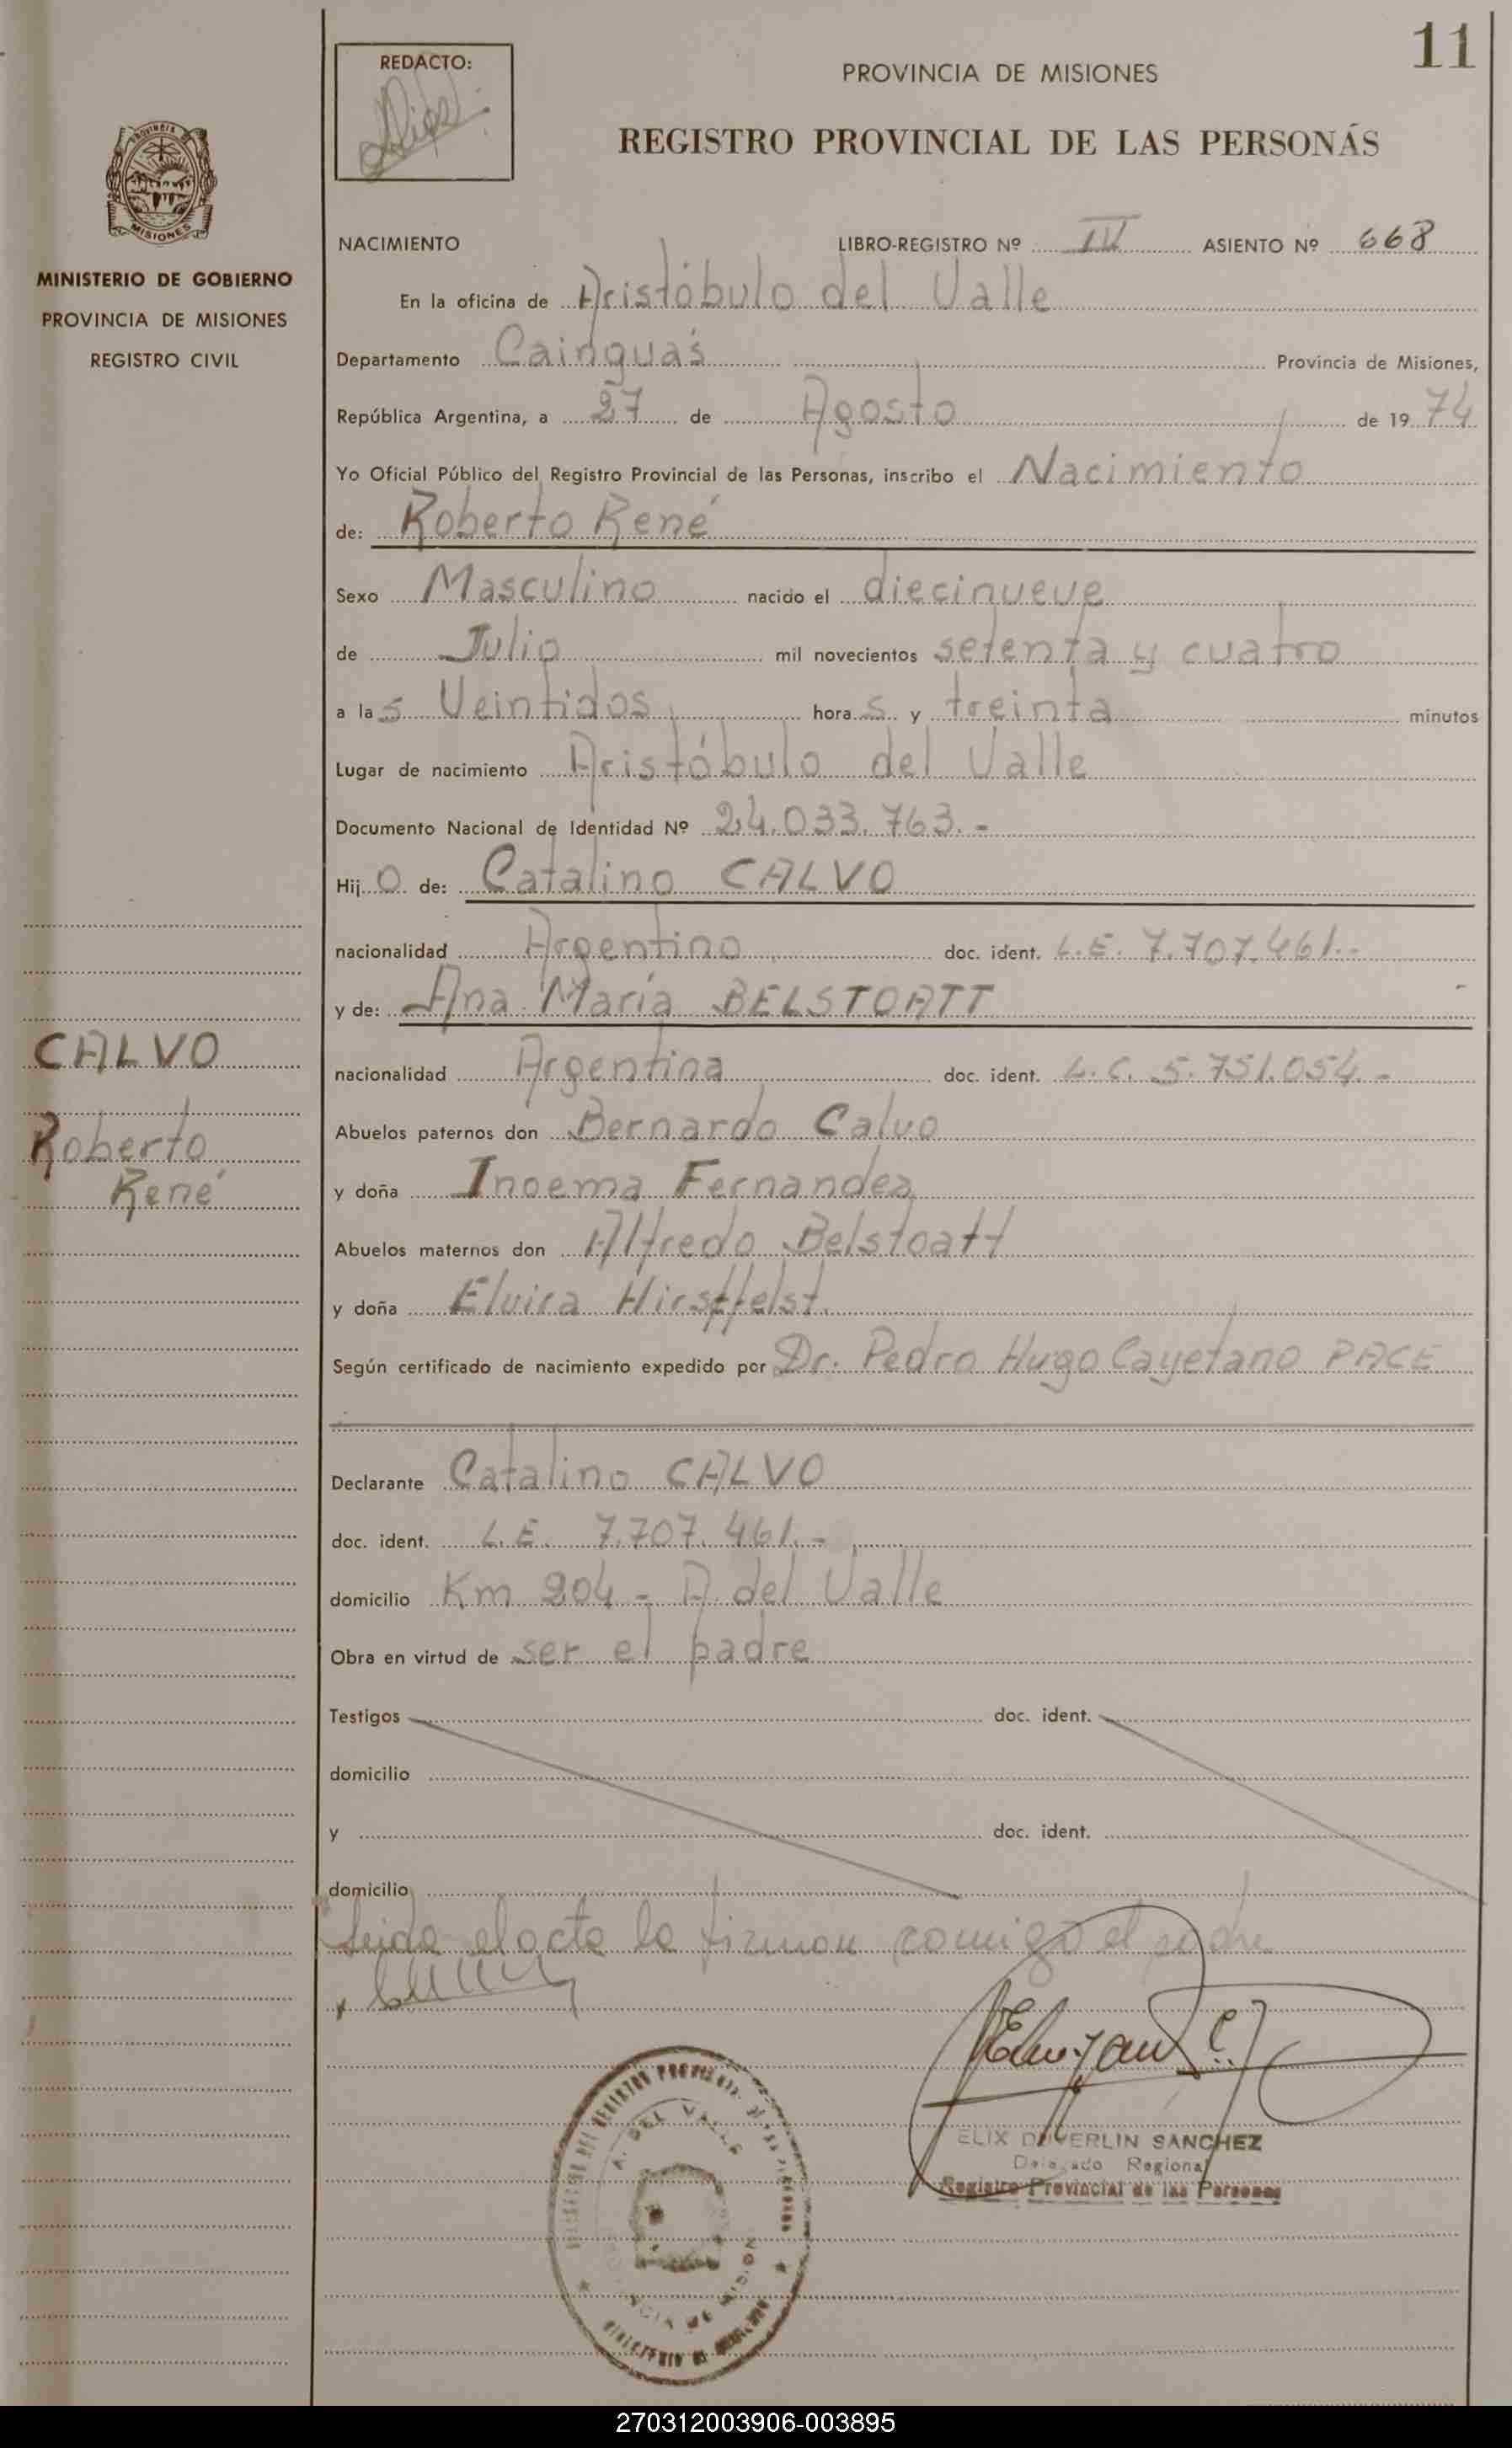 11
REDACTO:
PROVINCIA DE MISIONES
REGISTRO PROVINCIAL DE LAS PERSONAS
PROVINCIA DE
MISIONES
MINISTERIO DE GOBIERNO
PROVINCIA DE MISIONES
REGISTRO CIVIL
NACIMIENTO LIBRO-REGISTRO Nº IV ASIENTO Nº 668
En la oficina de Aristóbulo del Valle
Departamento Cainguás Provincia de Misiones,
República Argentina, a 27 de Agosto de 19 74
Yo Oficial Público del Registro Provincial de las Personas, inscribo el Nacimiento
de: Roberto René
Sexo Masculino nacido el diecinueve
de Julio mil novecientos setenta y cuatro
a las Veintidos horas y treinta minutos
Lugar de nacimiento Aristóbulo del Valle
Documento Nacional de Identidad Nº 24.033.763.-
Hijo de: Catalino CALVO
nacionalidad Argentino doc. ident. L.E. 7.707.461.-
y de: Ana María BELSTOATT
nacionalidad Argentina doc. ident. L.C. 5.751.054.-
Abuelos paternos don Bernardo Calvo
y doña Inoema Fernandez
Abuelos maternos don Alfredo Belstoatt
y doña Elvira Hirstfelst.
Según certificado de nacimiento expedido por Dr. Pedro Hugo Cayetano PACE
CALVO
Roberto
René
Declarante Catalino CALVO
doc. ident. L.E. 7.707.461.-
domicilio Km 204 - A. del Valle
Obra en virtud de ser el padre
Testigos doc. ident.
domicilio
y doc. ident.
domicilio
Leida el acta la firman comigo el padre
A. DEL VALLE
ELIX DUVERLIN SANCHEZ
Delegado Regional
Registro Provincial de las Personas
270312003906-003895